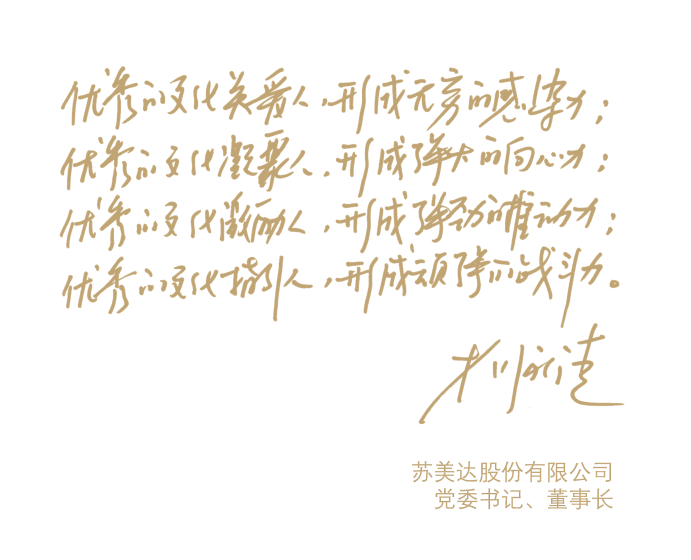 优秀的文化关爱人，形成无穷的感染力；
优秀的文化凝聚人，形成强大的向心力；
优秀的文化激励人，形成强劲的推动力；
优秀的文化指引人，形成顽强的战斗力。
苏美达股份有限公司
党委书记、董事长